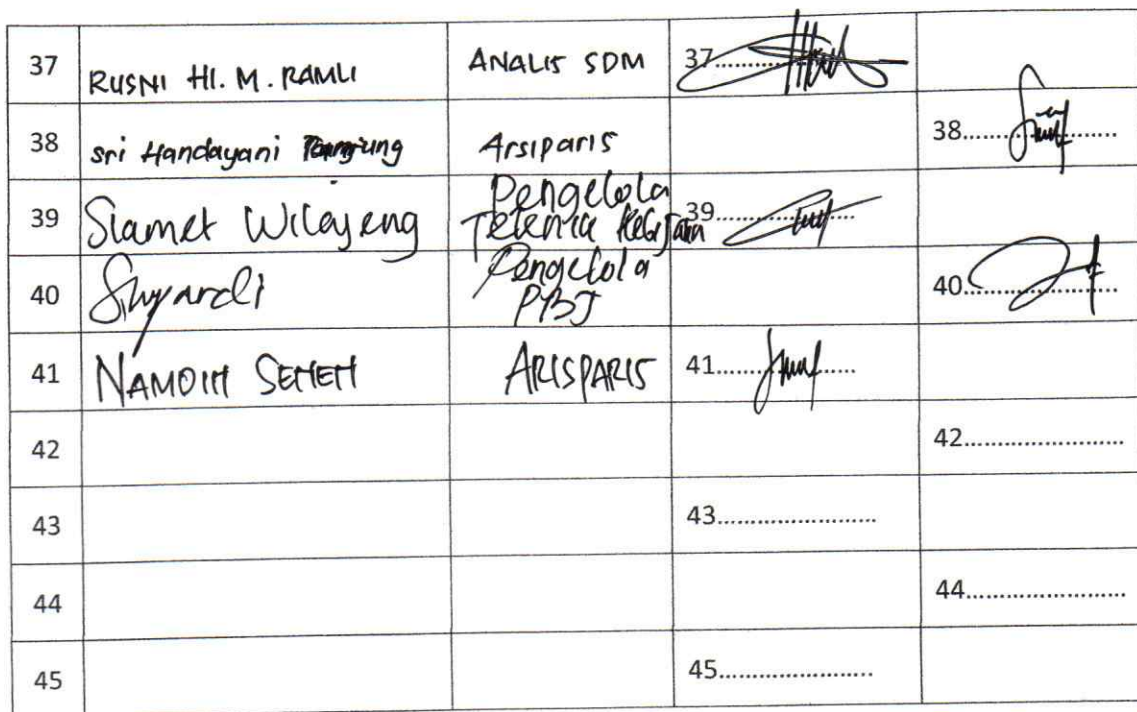 37 RUSNI HI. M. RAMLI ANALIS SDM 37..........
38 Sri Handayani Tanjung Arsiparis 38..........
39 Slamet Wilayeng Pengelola 39..........
40 Pengelola PBJ 40..........
41 NAMOIH SEHEH ARISPARIS 41..........
42 42..........
43 43..........
44 44..........
45 45..........